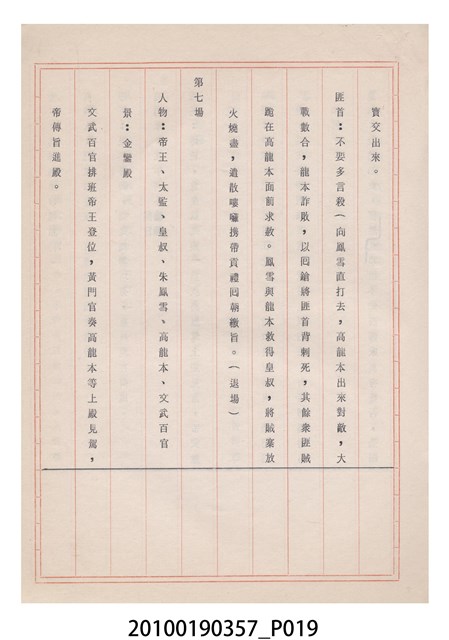 寶交出來。
匪首：不要多言殺（向鳳雪直打去，高龍本出來對敵，大
戰數合，龍本詐敗，以回鎗將匪首背刺死，其餘衆匪賊
跪在高龍本面前求救。鳳雪與龍本救得皇叔，將賊寨放
火燒盡，遣散嘍囉携帶貢禮回朝繳旨。（退場）
第七場
人物：帝王、太監、皇叔、朱鳳雪、高龍本、文武百官
景：金鑾殿
文武百官排班帝王登位，黃門官奏高龍本等上殿見駕，
帝傳旨進殿。
20100190357_P019